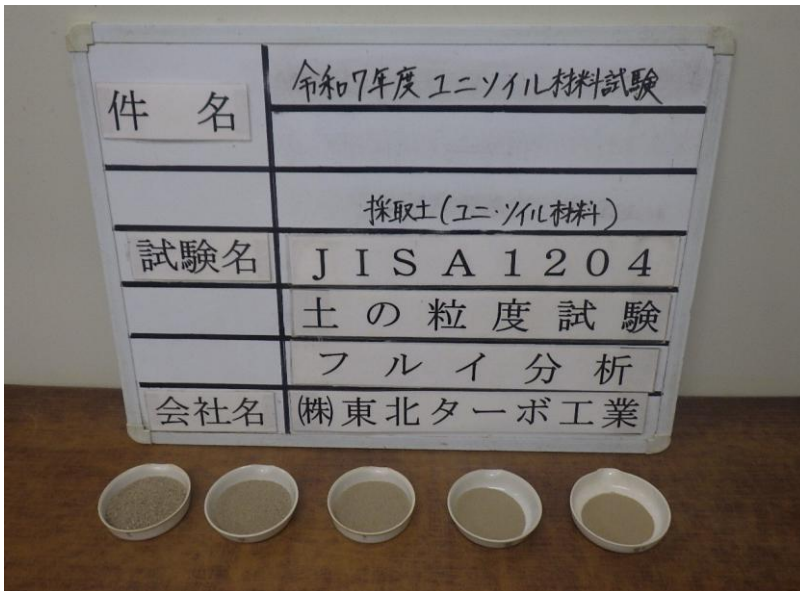 件名
令和7年度 ユニソイル材料試験
採取土(ユニ・ソイル材料)
試験名
JISA1204
土の粒度試験
フルイ分析
会社名
㈱東北ターボ工業